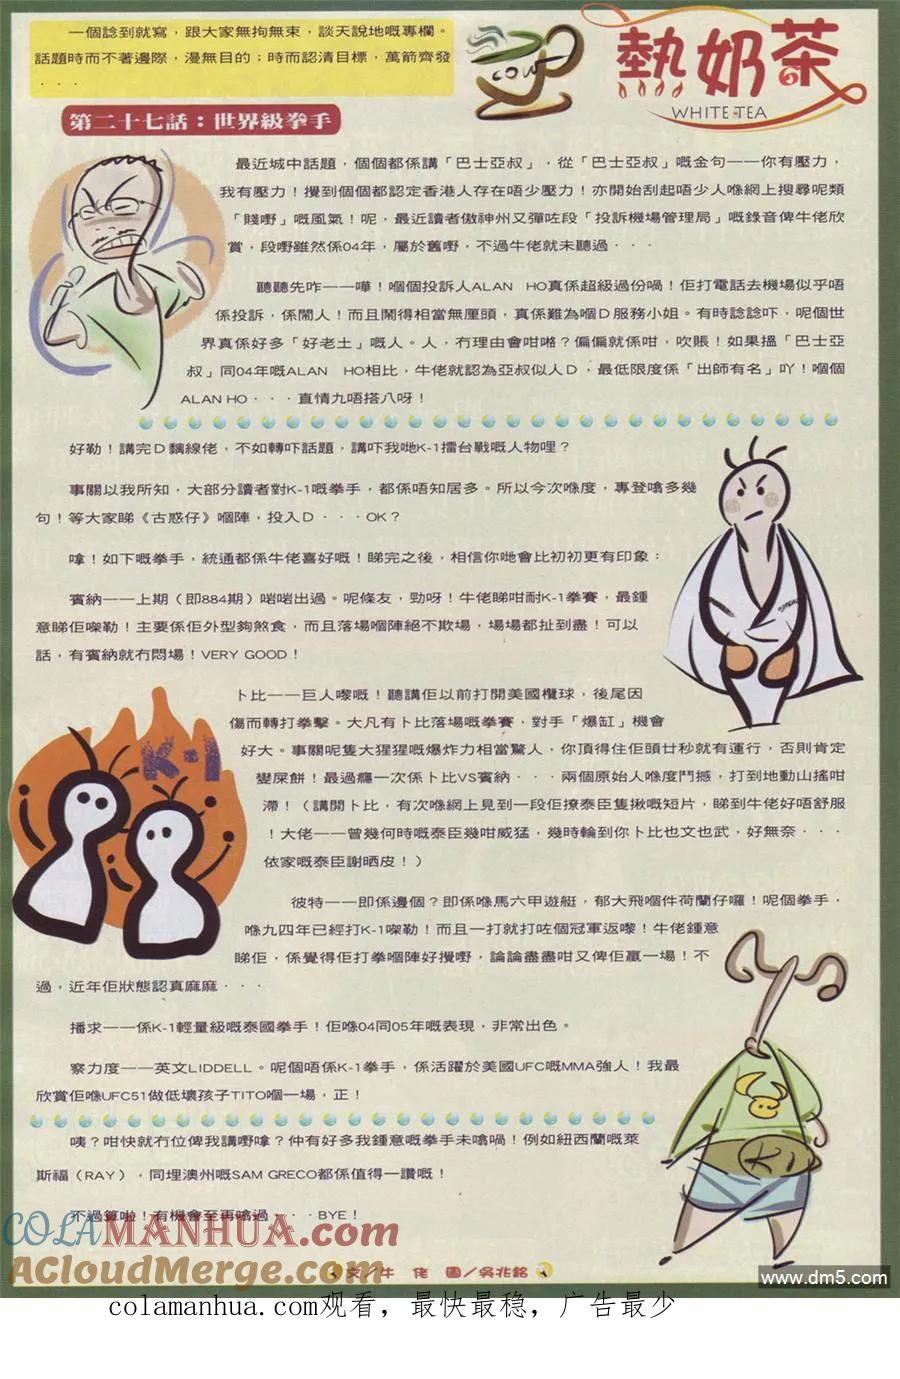 一個諗到就寫，跟大家無拘無束，談天說地嘅專欄。
話題時而不著邊際，漫無目的；時而認清目標，萬箭齊發
．．．
COW
熱奶茶
WHITE TEA
第二十七話：世界級拳手
最近城中話題，個個都係講「巴士亞叔」，從「巴士亞叔」嘅金句──你有壓力，
我有壓力！攪到個個都認定香港人存在唔少壓力！亦開始刮起唔少人喺網上搜尋呢類
「賤嘢」嘅風氣！呢，最近讀者傲神州又彈咗段「投訴機場管理局」嘅錄音俾牛佬欣
賞，段嘢雖然係04年，屬於舊嘢，不過牛佬就未聽過．．．
聽聽先咋──嘩！嗰個投訴人ALAN HO真係超級過份喎！佢打電話去機場似乎唔
係投訴，係鬧人！而且鬧得相當無厘頭，真係難為嗰D服務小姐。有時諗諗吓，呢個世
界真係好多「好老土」嘅人。人，冇理由會咁啲？偏偏就係咁，吹賬！如果搵「巴士亞
叔」同04年嘅ALAN HO相比，牛佬就認為亞叔似人D，最低限度係「出師有名」吖！嗰個
ALAN HO．．．直情九唔搭八呀！
好勒！講完D黐線佬，不如轉吓話題，講吓我哋K-1擂台戰嘅人物哩？
事關以我所知，大部分讀者對K-1嘅拳手，都係唔知居多。所以今次喺度，專登噏多幾
句！等大家睇《古惑仔》嗰陣，投入D．．．OK？
嗱！如下嘅拳手，統通都係牛佬喜好嘅！睇完之後，相信你哋會比初初更有印象：
賓納──上期（即884期）啱啱出過。呢條友，勁呀！牛佬睇咁耐K-1拳賽，最鍾
意睇佢㗎勒！主要係佢外型夠煞食，而且落場嗰陣絕不欺場，場場都扯到盡！可以
話，有賓納就冇悶場！VERY GOOD！
卜比──巨人嚟嘅！聽講佢以前打開美國欖球，後尾因
傷而轉打拳擊。大凡有卜比落場嘅拳賽，對手「爆缸」機會
好大。事關呢隻大猩猩嘅爆炸力相當驚人，你頂得住佢頭廿秒就有運行，否則肯定
變屎餅！最過癮一次係卜比VS賓納．．．兩個原始人喺度鬥撼，打到地動山搖咁
滯！（講開卜比，有次喺網上見到一段佢撩泰臣隻揪嘅短片，睇到牛佬好唔舒服
！大佬──曾幾何時嘅泰臣幾咁威猛，幾時輪到你卜比也文也武，好無奈．．．
依家嘅泰臣謝晒皮！）
彼特──即係邊個？即係喺馬六甲遊艇，郁大飛嗰件荷蘭仔囉！呢個拳手，
喺九四年已經打K-1㗎勒！而且一打就打咗個冠軍返嚟！牛佬鍾意
睇佢，係覺得佢打拳嗰陣好攪嘢，論論盡盡咁又俾佢贏一場！不
過，近年佢狀態認真麻麻．．．
播求──係K-1輕量級嘅泰國拳手！佢喺04同05年嘅表現，非常出色。
察力度──英文LIDDELL。呢個唔係K-1拳手，係活躍於美國UFC嘅MMA強人！我最
欣賞佢喺UFC51做低壞孩子TITO嗰一場，正！
咦？咁快就冇位俾我講嘢嗱？仲有好多我鍾意嘅拳手未噏喎！例如紐西蘭嘅萊
斯福（RAY），同埋澳州嘅SAM GRECO都係值得一讚嘅！
不過算啦！有機會至再噏過．．．BYE！
K-1
K1
COLAMANHUA.com
ACloudMerge.com
文／牛佬 圖／吳兆銘
www.dm5.com
colamanhua.com观看，最快最稳，广告最少